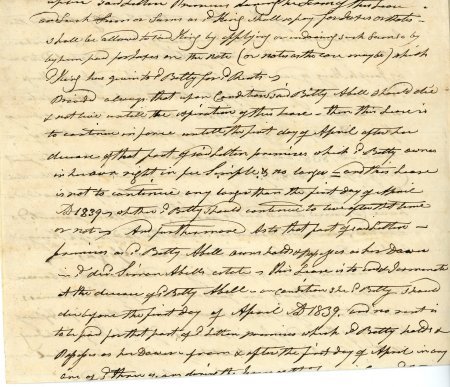 upon said
and such Sum or Sums as sd King shall so pay for
shall be allowed to sd King by applying or indorsing such Sum so
by him paid for on the Note (or notes as the case may be) which
sd King has given to sd Betty for sd Rents
Provided always that upon Condition said Betty Abell should die
& not live untill the expiration of this Lease – then this Lease is
to continue in force untill the first day of April after her
decease of that part of said premises which sd Betty owns
in her own right in fee Simple & no longer – and this Lease
is not to continue any longer than the first day of April
AD 1839 whether sd Betty should continue to live after that time
or not And furthermore As to that part of said
premises as sd Betty Abell now holds & possesses as her Dower
in sd Abells estate this Lease is to end & terminate
at the decease of sd Betty Abell – on condition she sd Betty should
die before the first day of April AD 1839, and no rent is
to be paid for that part of sd premises which sd Betty holds &
Possesses as her Dower from & after the first day of April in any
one of sd three years